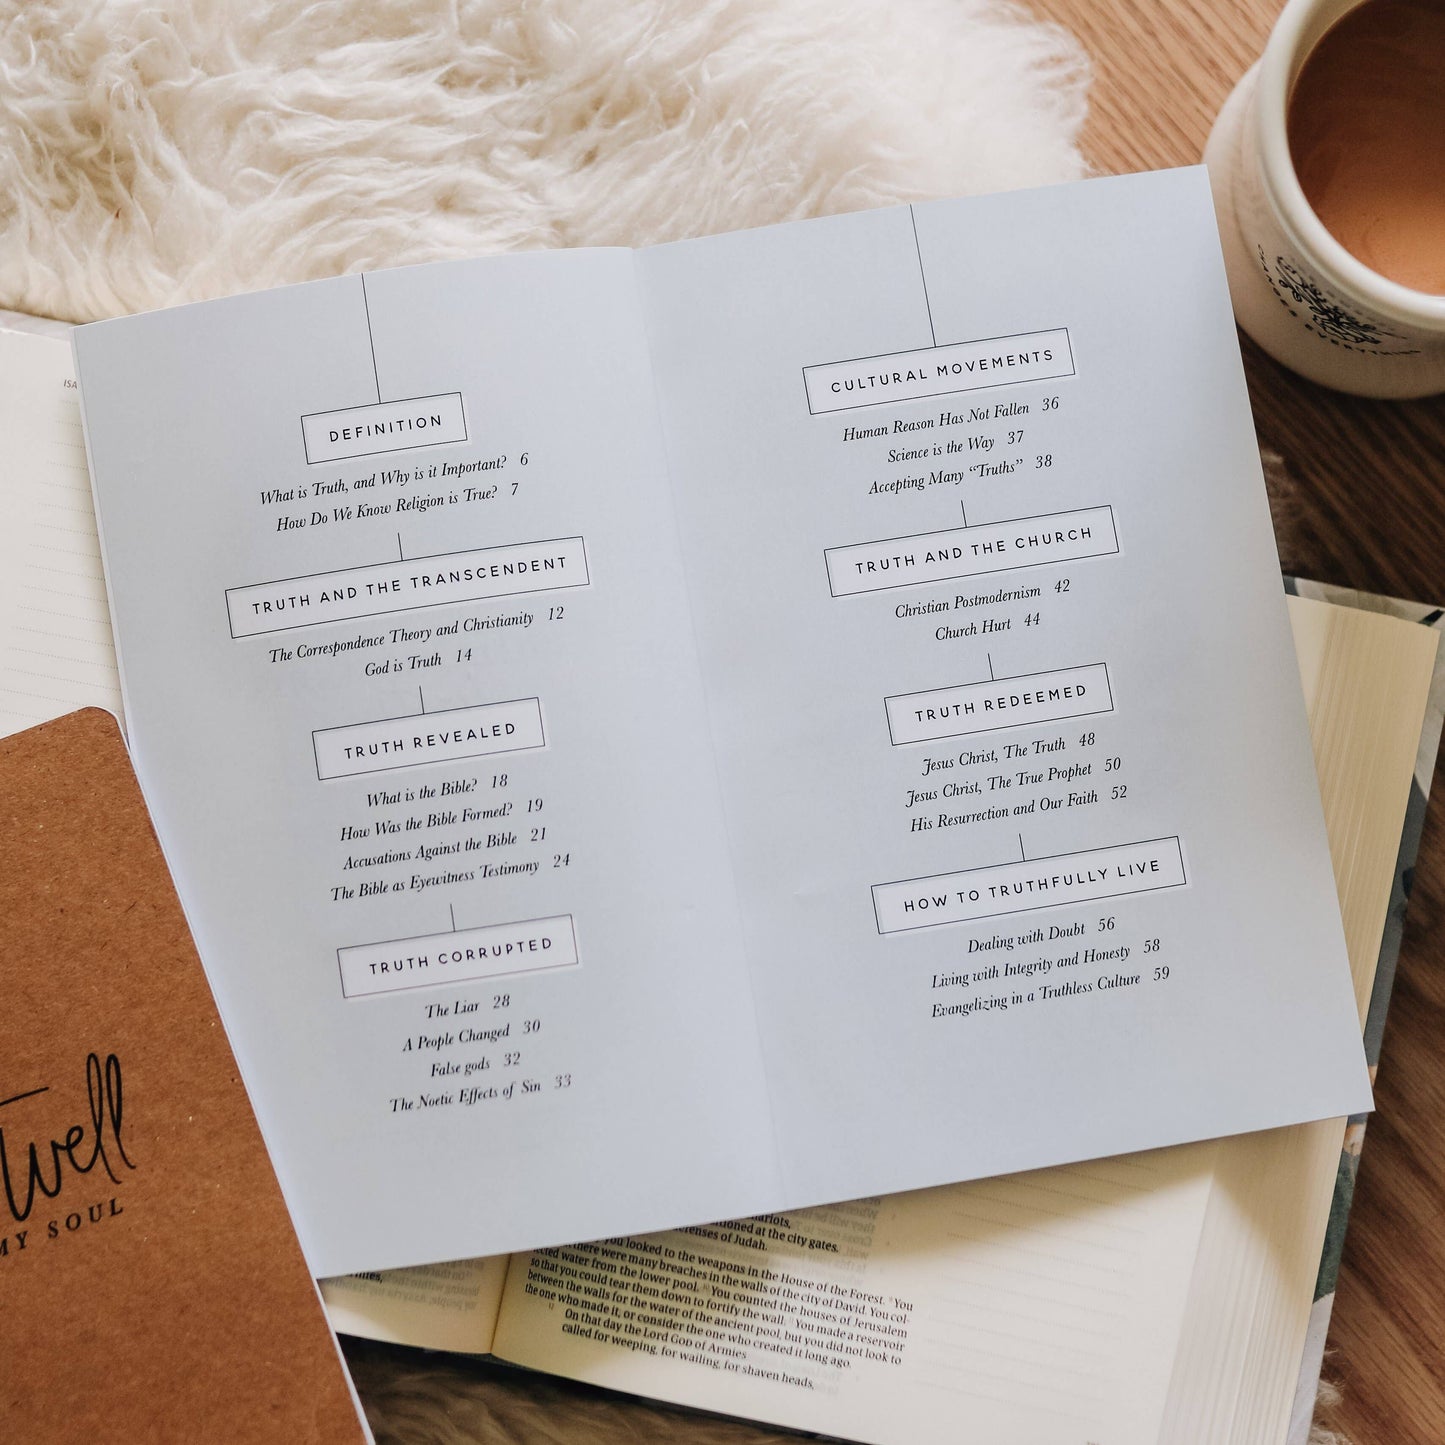 DEFINITION
What is Truth, and Why is it Important? 6
How Do We Know Religion is True? 7
TRUTH AND THE TRANSCENDENT
The Correspondence Theory and Christianity 12
God is Truth 14
TRUTH REVEALED
What is the Bible? 18
How Was the Bible Formed? 19
Accusations Against the Bible 21
The Bible as Eyewitness Testimony 24
TRUTH CORRUPTED
The Liar 28
A People Changed 30
False gods 32
The Noetic Effects of Sin 33
CULTURAL MOVEMENTS
Human Reason Has Not Fallen 36
Science is the Way 37
Accepting Many “Truths” 38
TRUTH AND THE CHURCH
Christian Postmodernism 42
Church Hurt 44
TRUTH REDEEMED
Jesus Christ, The Truth 48
Jesus Christ, The True Prophet 50
His Resurrection and Our Faith 52
HOW TO TRUTHFULLY LIVE
Dealing with Doubt 56
Living with Integrity and Honesty 58
Evangelizing in a Truthless Culture 59
ISA
well
MY SOUL
EVERYTHING
at the city gates.
of Judah.
you looked to the weapons in the House of the Forest. You
there were many breaches in the walls of the city of David. You col-
water from the lower pool. You counted the houses of Jerusalem
so that you could tear them down to fortify the wall. You made a reservoir
between the walls for the water of the ancient pool, but you did not look to
the one who made it, or consider the one who created it long ago.
On that day the Lord GOD of Armies
called for weeping, for wailing, for shaven heads,